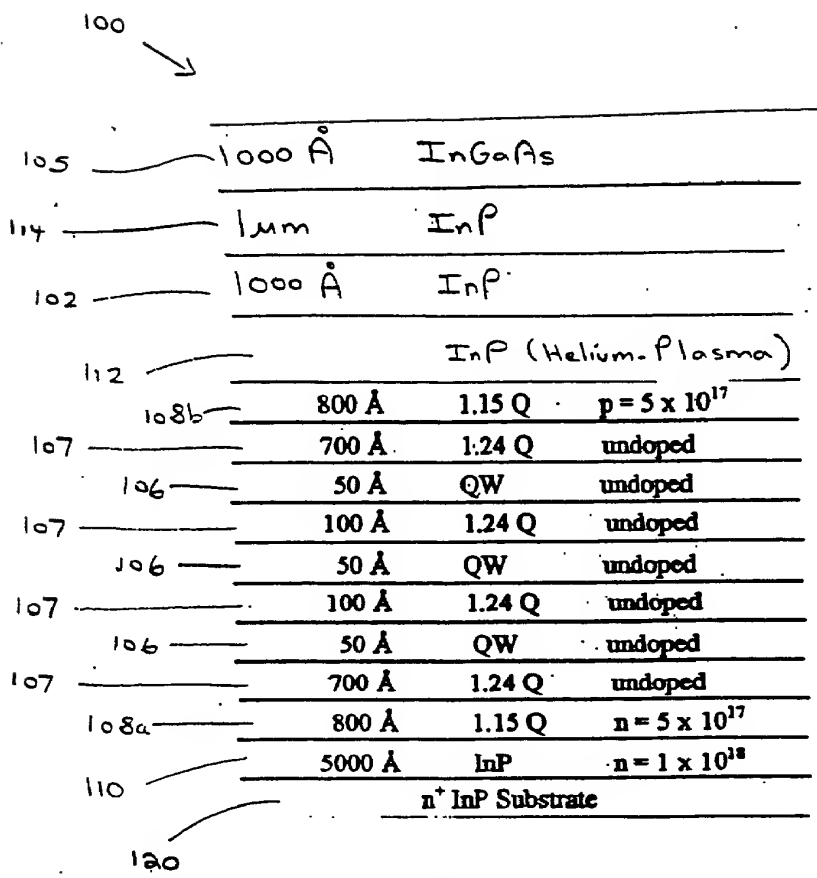 100
105 1000 Å InGaAs
114 1μm InP
102 1000 Å InP
112 InP (Helium-Plasma)
108b 800 Å 1.15 Q p = 5 x 10¹⁷
107 700 Å 1.24 Q undoped
106 50 Å QW undoped
107 100 Å 1.24 Q undoped
106 50 Å QW undoped
107 100 Å 1.24 Q undoped
106 50 Å QW undoped
107 700 Å 1.24 Q undoped
108a 800 Å 1.15 Q n = 5 x 10¹⁷
110 5000 Å InP n = 1 x 10¹⁸
n⁺ InP Substrate
120